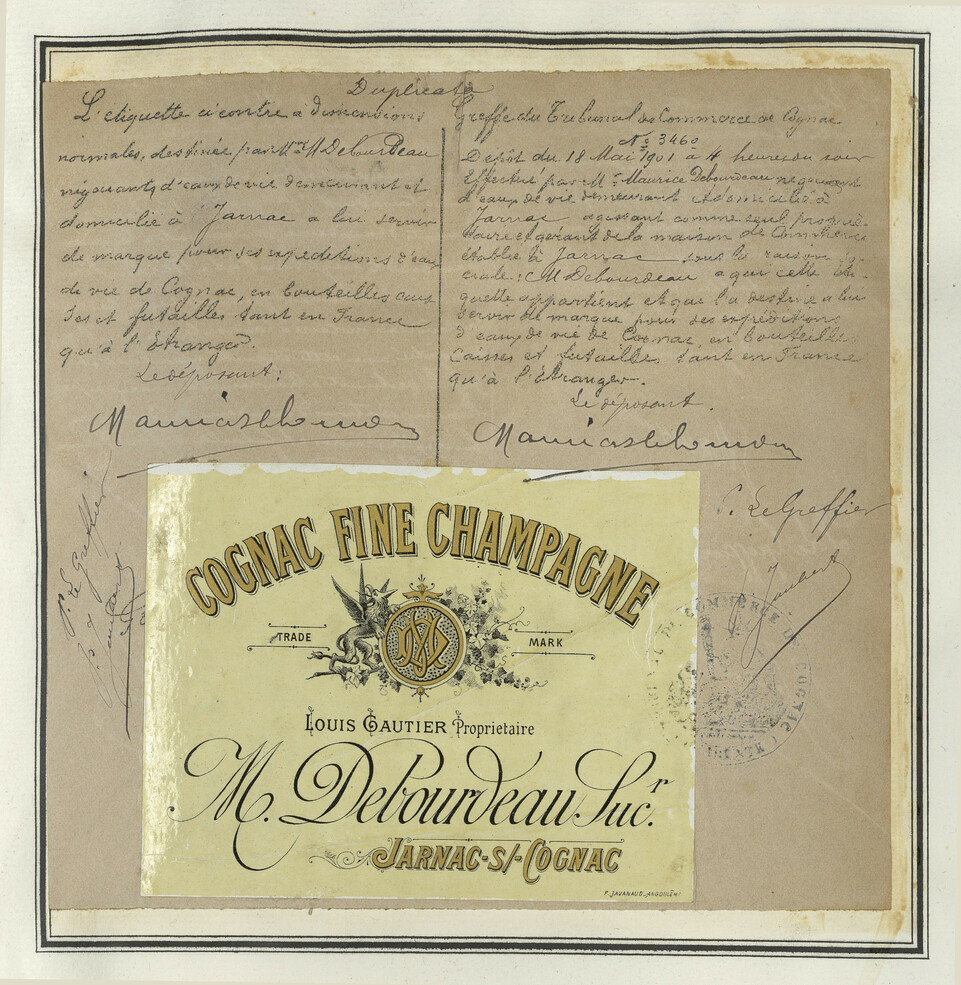 Duplicata
L'etiquette ci contre a dimensions
normales, destinée par Mr M Debourdeau
négociant, d'eaux de vie demeurant et
domicilié à Jarnac a lui servir
de marque pour ses expeditions d'eaux
de vie de Cognac, en bouteilles cais
ses et futailles tant en France
qu'à l'Etranger.
Le déposant:
Greffe du Tribunal de Commerce de Cognac
No 3460
Depot du 18 Mai 1901 à 4 heures du soir
Effectué par Mr Maurice Debourdeau negociant
d'eaux de vie demeurant et domicilié à
Jarnac agissant comme seul proprié-
taire et gérant de la maison de Commerce
établie à Jarnac sous la raison so-
ciale: M Debourdeau a qui cette éti-
quette appartient et qui l'a destiné a lui
servir de marque pour ses expéditions
d'eaux de vie de Cognac, en bouteilles
Caisses et futailles tant en France
qu'à l'Etranger.
Le déposant.
P. Le Greffier
Joubert
Pr Le Greffier
COGNAC FINE CHAMPAGNE
TRADE MARK
LOUIS GAUTIER Proprietaire
M. Debourdeau Sucr.
JARNAC-S/-COGNAC
P. JAVANAUD, ANGOULÊME
COMMERCE DE COGNAC